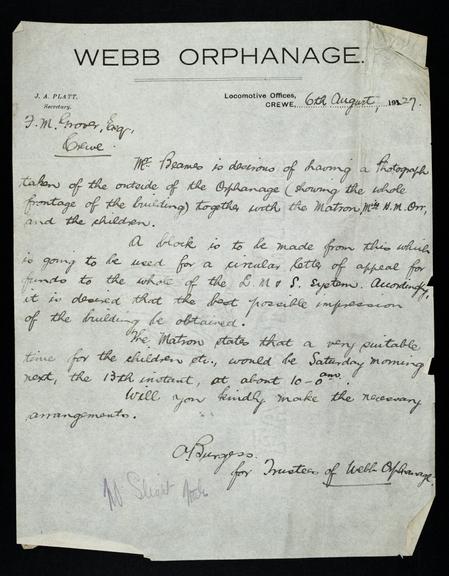 WEBB ORPHANAGE.
J. A. PLATT,
Secretary.
Locomotive Offices,
CREWE, 6th August, 1927.
F. M. Grover, Esq.,
Crewe.
Mr Beames is desirous of having a Photograph
taken of the outside of the Orphanage (showing the whole
frontage of the building) together with the Matron, Miss H. M. Orr,
and the children.
A block is to be made from this which
is going to be used for a circular letter of appeal for
funds to the whole of the L M & S. system. Accordingly,
it is desired that the best possible impression
of the building be obtained.
The Matron states that a very suitable
time for the children etc., would be Saturday morning
next, the 13th instant, at about 10-0 am.
Will you kindly make the necessary
arrangements.
A Burgess.
for Trustees of Webb Orphanage.
Slight